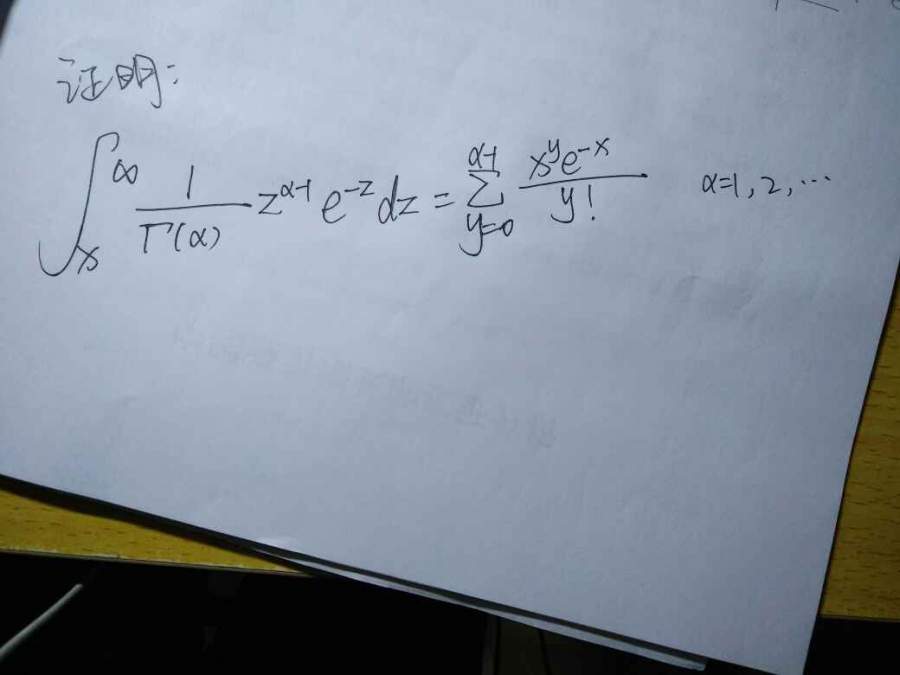 证明:
∫_x^∞ 1/Γ(α) z^{α-1} e^{-z} dz = Σ_{y=0}^{α-1} x^y e^{-x} / y!   α=1, 2, ⋯